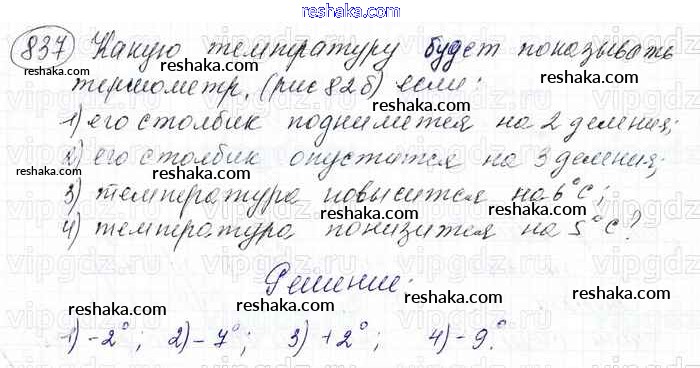 reshaka.com
837 Какую температуру будет показывать
reshaka.com reshaka.com reshaka.com
термометр, (рис 82б) если:
reshaka.com
1) его столбик поднимется на 2 деления;
reshaka.com reshaka.com
2) его столбик опустится на 3 деления;
3) температура повысится на 6°С;
reshaka.com reshaka.com
4) температура понизится на 5°С?
reshaka.com
Решение:
reshaka.com reshaka.com
1) -2°; 2) -7°; 3) +2°; 4) -9°.
reshaka.com reshaka.com
vipgdz.ru